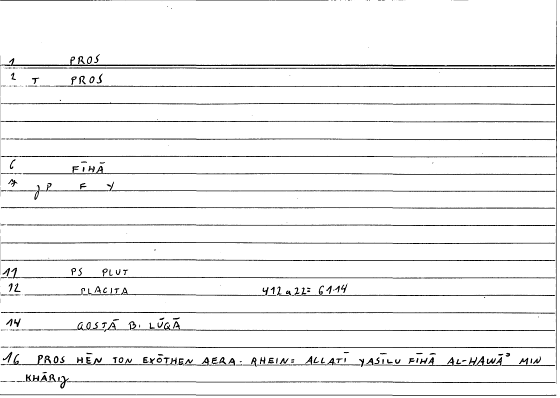 1 PROS
2 T PROS
6 FĪHĀ
7 jP F Y
11 PS PLUT
12 PLACITA 412 a 22 = 61 14
14 QOSṬĀ B. LŪQĀ
16 PROS HĒN TON EXŌTHEN AERA. RHEIN = ALLATĪ YASĪLU FĪHĀ AL-HAWĀʾ MIN
KHĀRIJ